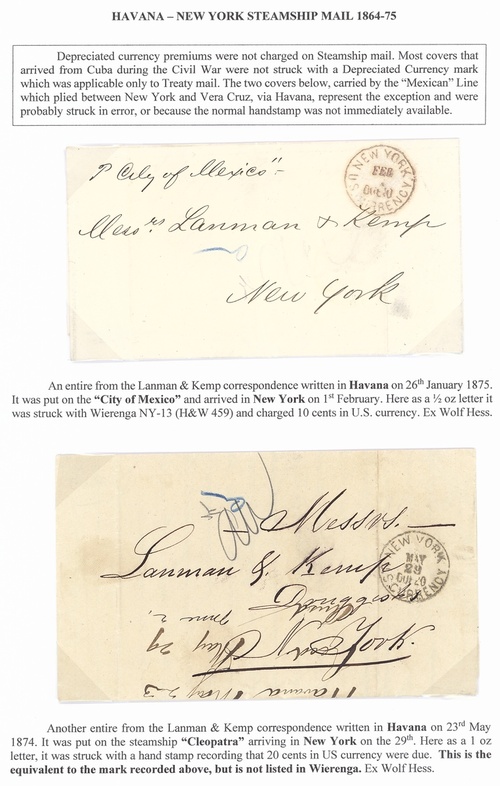 HAVANA – NEW YORK STEAMSHIP MAIL 1864-75
Depreciated currency premiums were not charged on Steamship mail. Most covers that
arrived from Cuba during the Civil War were not struck with a Depreciated Currency mark
which was applicable only to Treaty mail. The two covers below, carried by the “Mexican” Line
which plied between New York and Vera Cruz, via Havana, represent the exception and were
probably struck in error, or because the normal handstamp was not immediately available.
NEW YORK
FEB
U.S. CURRENCY
P City of Mexico"-
Messrs Lanman & Kemp
New York
An entire from the Lanman & Kemp correspondence written in Havana on 26th January 1875.
It was put on the “City of Mexico” and arrived in New York on 1st February. Here as a ½ oz letter it
was struck with Wierenga NY-13 (H&W 459) and charged 10 cents in U.S. currency. Ex Wolf Hess.
Messrs.
Lanman & Kemp
NEW YORK
MAY
29
DUE 20
U.S. CURRENCY
Druggists
New York.
May 29
Havana May 23
Another entire from the Lanman & Kemp correspondence written in Havana on 23rd May
1874. It was put on the steamship “Cleopatra” arriving in New York on the 29th. Here as a 1 oz
letter, it was struck with a hand stamp recording that 20 cents in US currency were due. This is the
equivalent to the mark recorded above, but is not listed in Wierenga. Ex Wolf Hess.